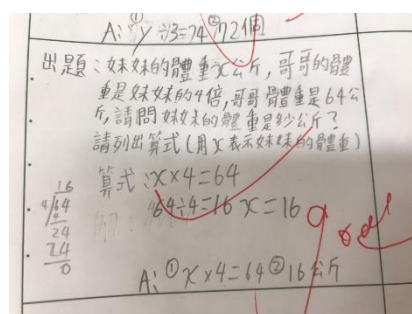 A:①y÷3=24②72個
出題:妹妹的體重x公斤,哥哥的體
重是妹妹的4倍,哥哥體重是64公
斤,請問妹妹的體重是多少公斤?
請列出算式(用x表示妹妹的體重)
算式:x×4=64
64÷4=16 x=16
16
4/64
4
24
24
0
A:①x×4=64②16公斤